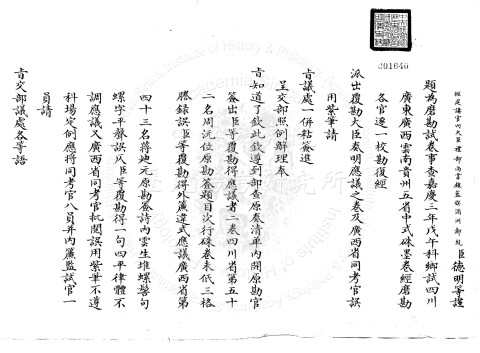 經筵講官內大臣禮部尚書鑲藍旗滿洲都統臣德明等謹
題為磨勘試卷事查嘉慶三年戊午科鄉試四川
廣東廣西雲南貴州五省中式硃墨卷經磨勘
各官逐一校勘復經
派出覆勘大臣奏明應議之卷及廣西省同考官誤
用紫筆請
旨議處一併粘簽進
呈交部照例辦理奉
旨知道了欽此欽遵到部查原奏清單內開原勘官
簽出臣等覆勘得應議者二卷四川省第五十
二名周沆位原勘簽題目次行硃卷未低三格
謄錄誤臣等覆勘得外簾違式應議廣西省第
四十三名蔣地元原勘簽詩內雲生堆螺髻句
螺字平聲誤仄臣等覆勘得一句四平律體不
調應議又廣西省同考官批閱誤用紫筆不遵
科場定例應將同考官八員并內簾監試官一
員請
旨交部議處各等語
001640